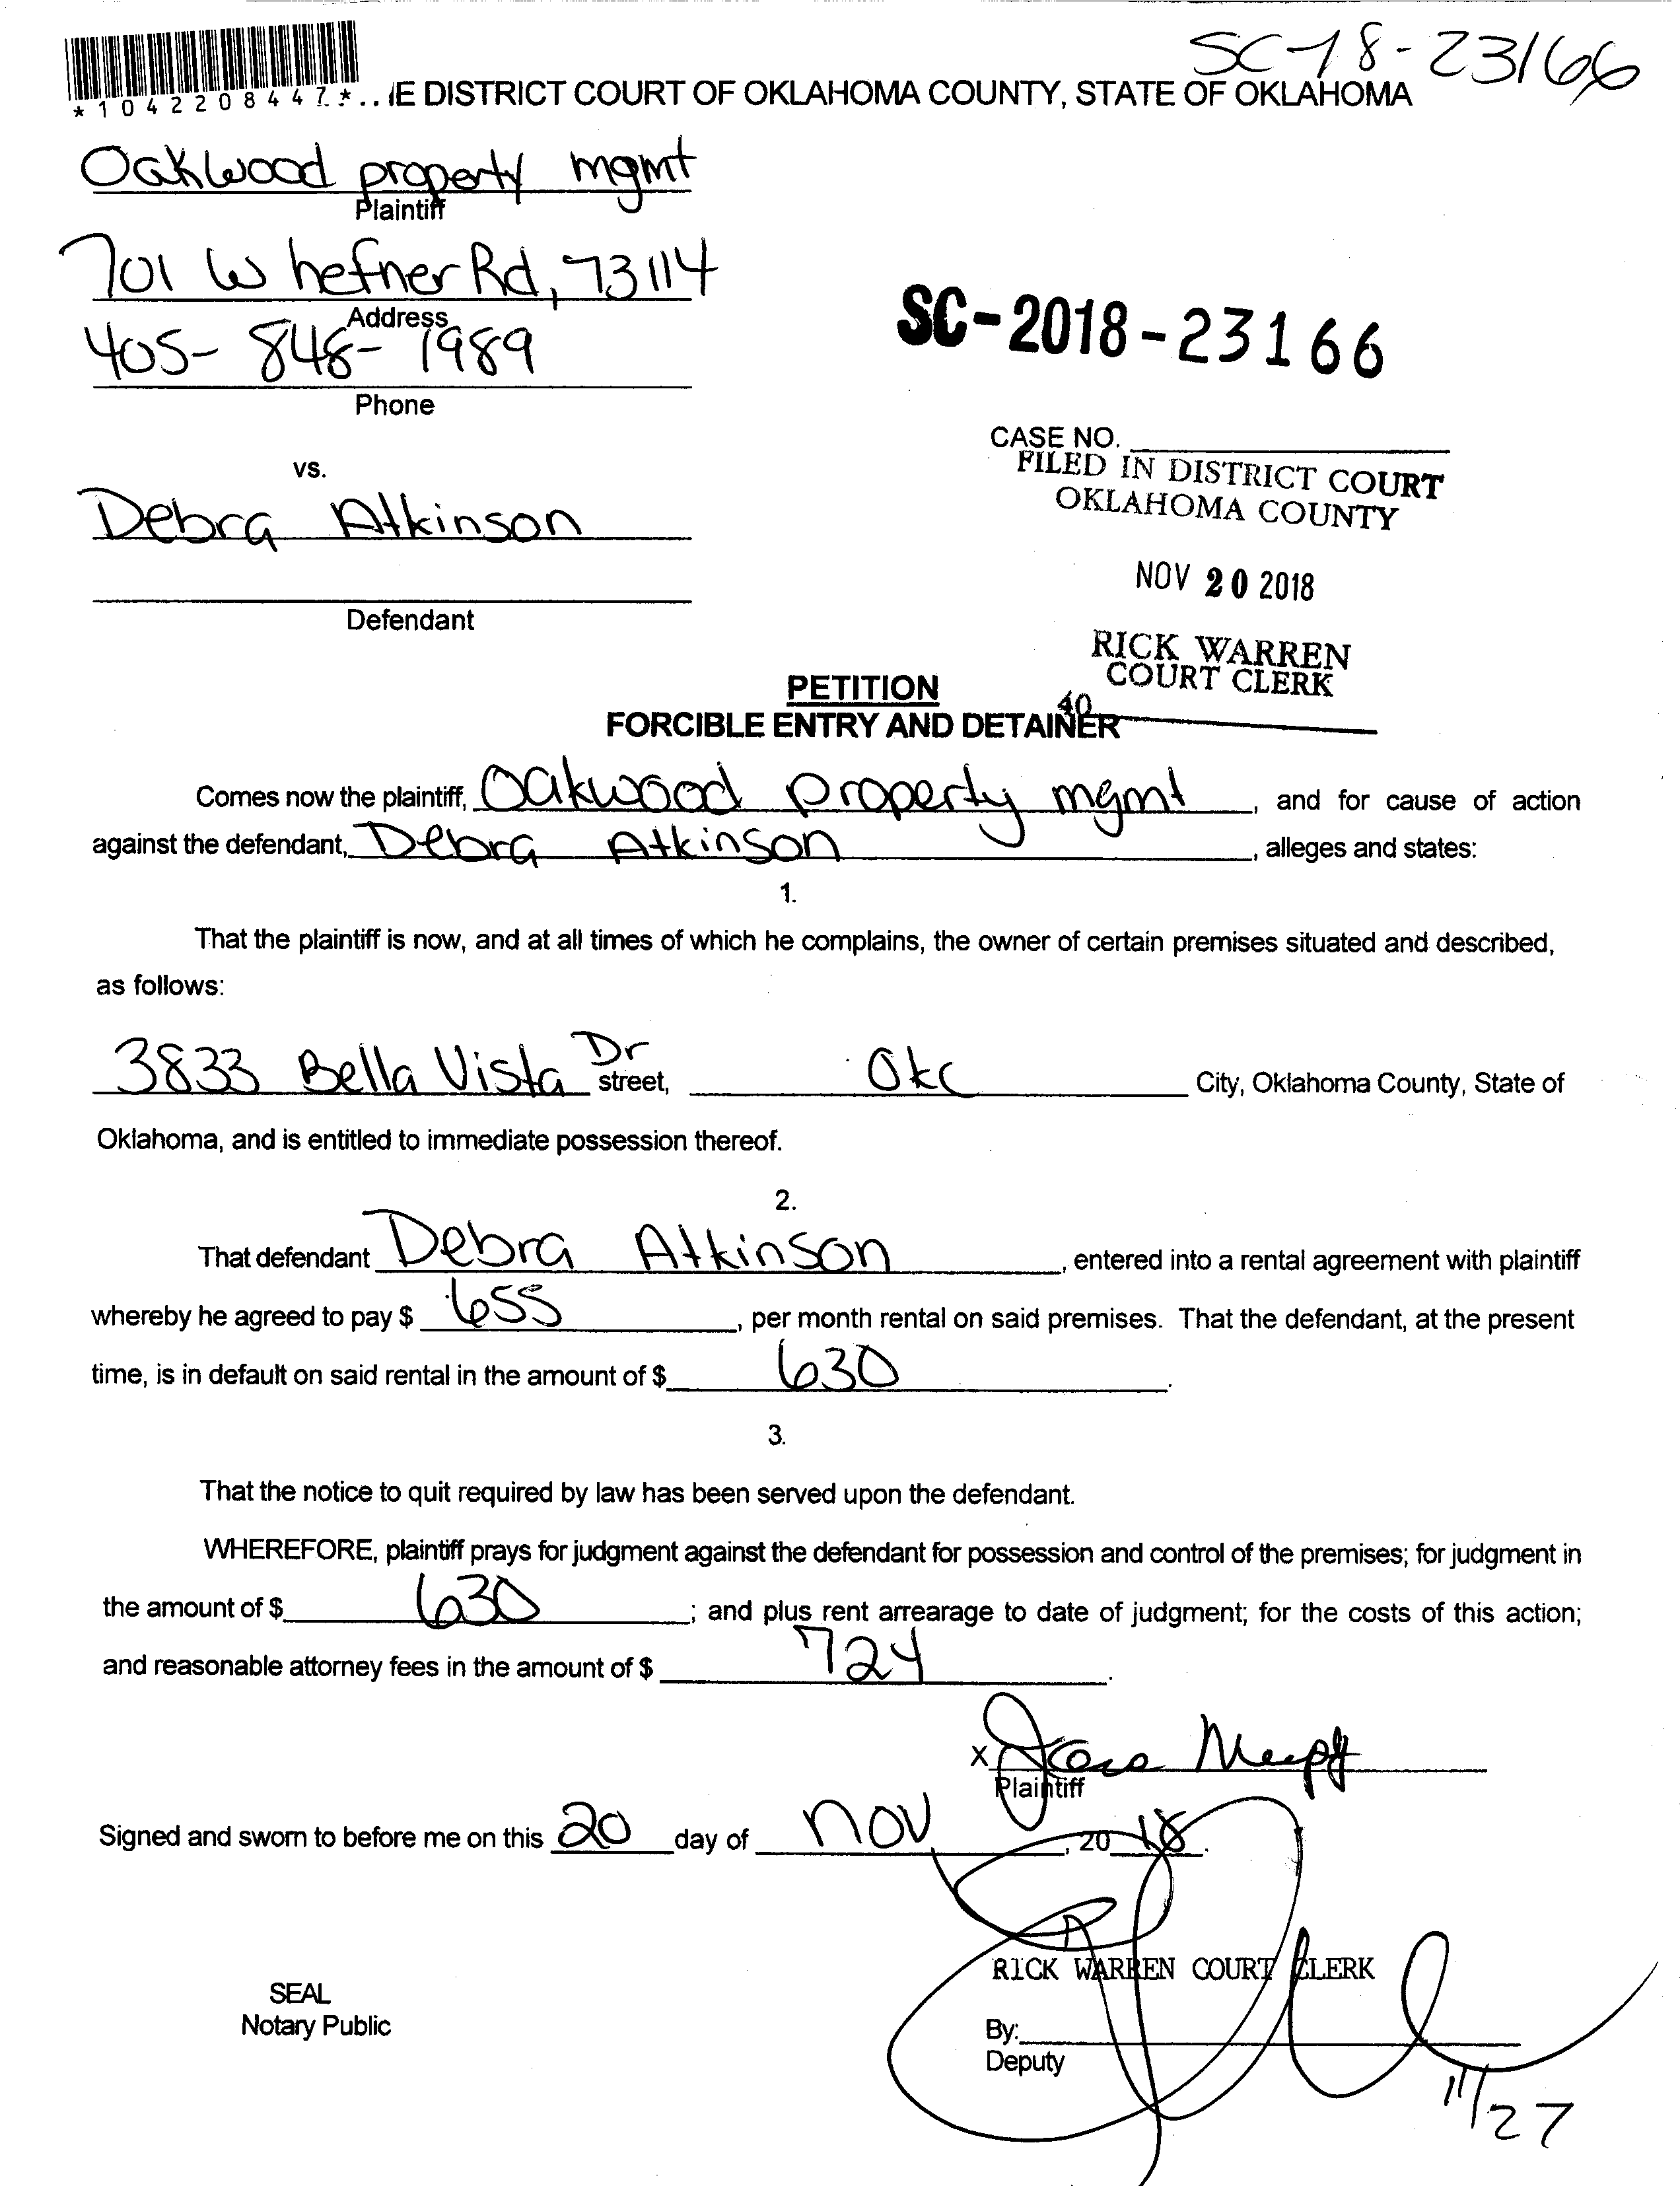 SC-18-23166
*1042208447*
IE DISTRICT COURT OF OKLAHOMA COUNTY, STATE OF OKLAHOMA
Oakwood property mgmt
Plaintiff
701 W hefner Rd, 73114
Address
405-848-1989
Phone
SC-2018-23166
CASE NO.
FILED IN DISTRICT COURT
OKLAHOMA COUNTY
NOV 20 2018
RICK WARREN
COURT CLERK
40
vs.
Debra Atkinson
Defendant
PETITION
FORCIBLE ENTRY AND DETAINER
Comes now the plaintiff, Oakwood property mgmt, and for cause of action
against the defendant, Debra Atkinson, alleges and states:
1.
That the plaintiff is now, and at all times of which he complains, the owner of certain premises situated and described,
as follows:
3833 Bella Vista Dr street, Okc City, Oklahoma County, State of
Oklahoma, and is entitled to immediate possession thereof.
2.
That defendant Debra Atkinson, entered into a rental agreement with plaintiff
whereby he agreed to pay $ 655, per month rental on said premises. That the defendant, at the present
time, is in default on said rental in the amount of $ 630.
3.
That the notice to quit required by law has been served upon the defendant.
WHEREFORE, plaintiff prays for judgment against the defendant for possession and control of the premises; for judgment in
the amount of $ 630; and plus rent arrearage to date of judgment; for the costs of this action;
and reasonable attorney fees in the amount of $ 724.
X
Plaintiff
Signed and sworn to before me on this 20 day of nov, 2018.
RICK WARREN COURT CLERK
SEAL
Notary Public
By:
Deputy
11/27